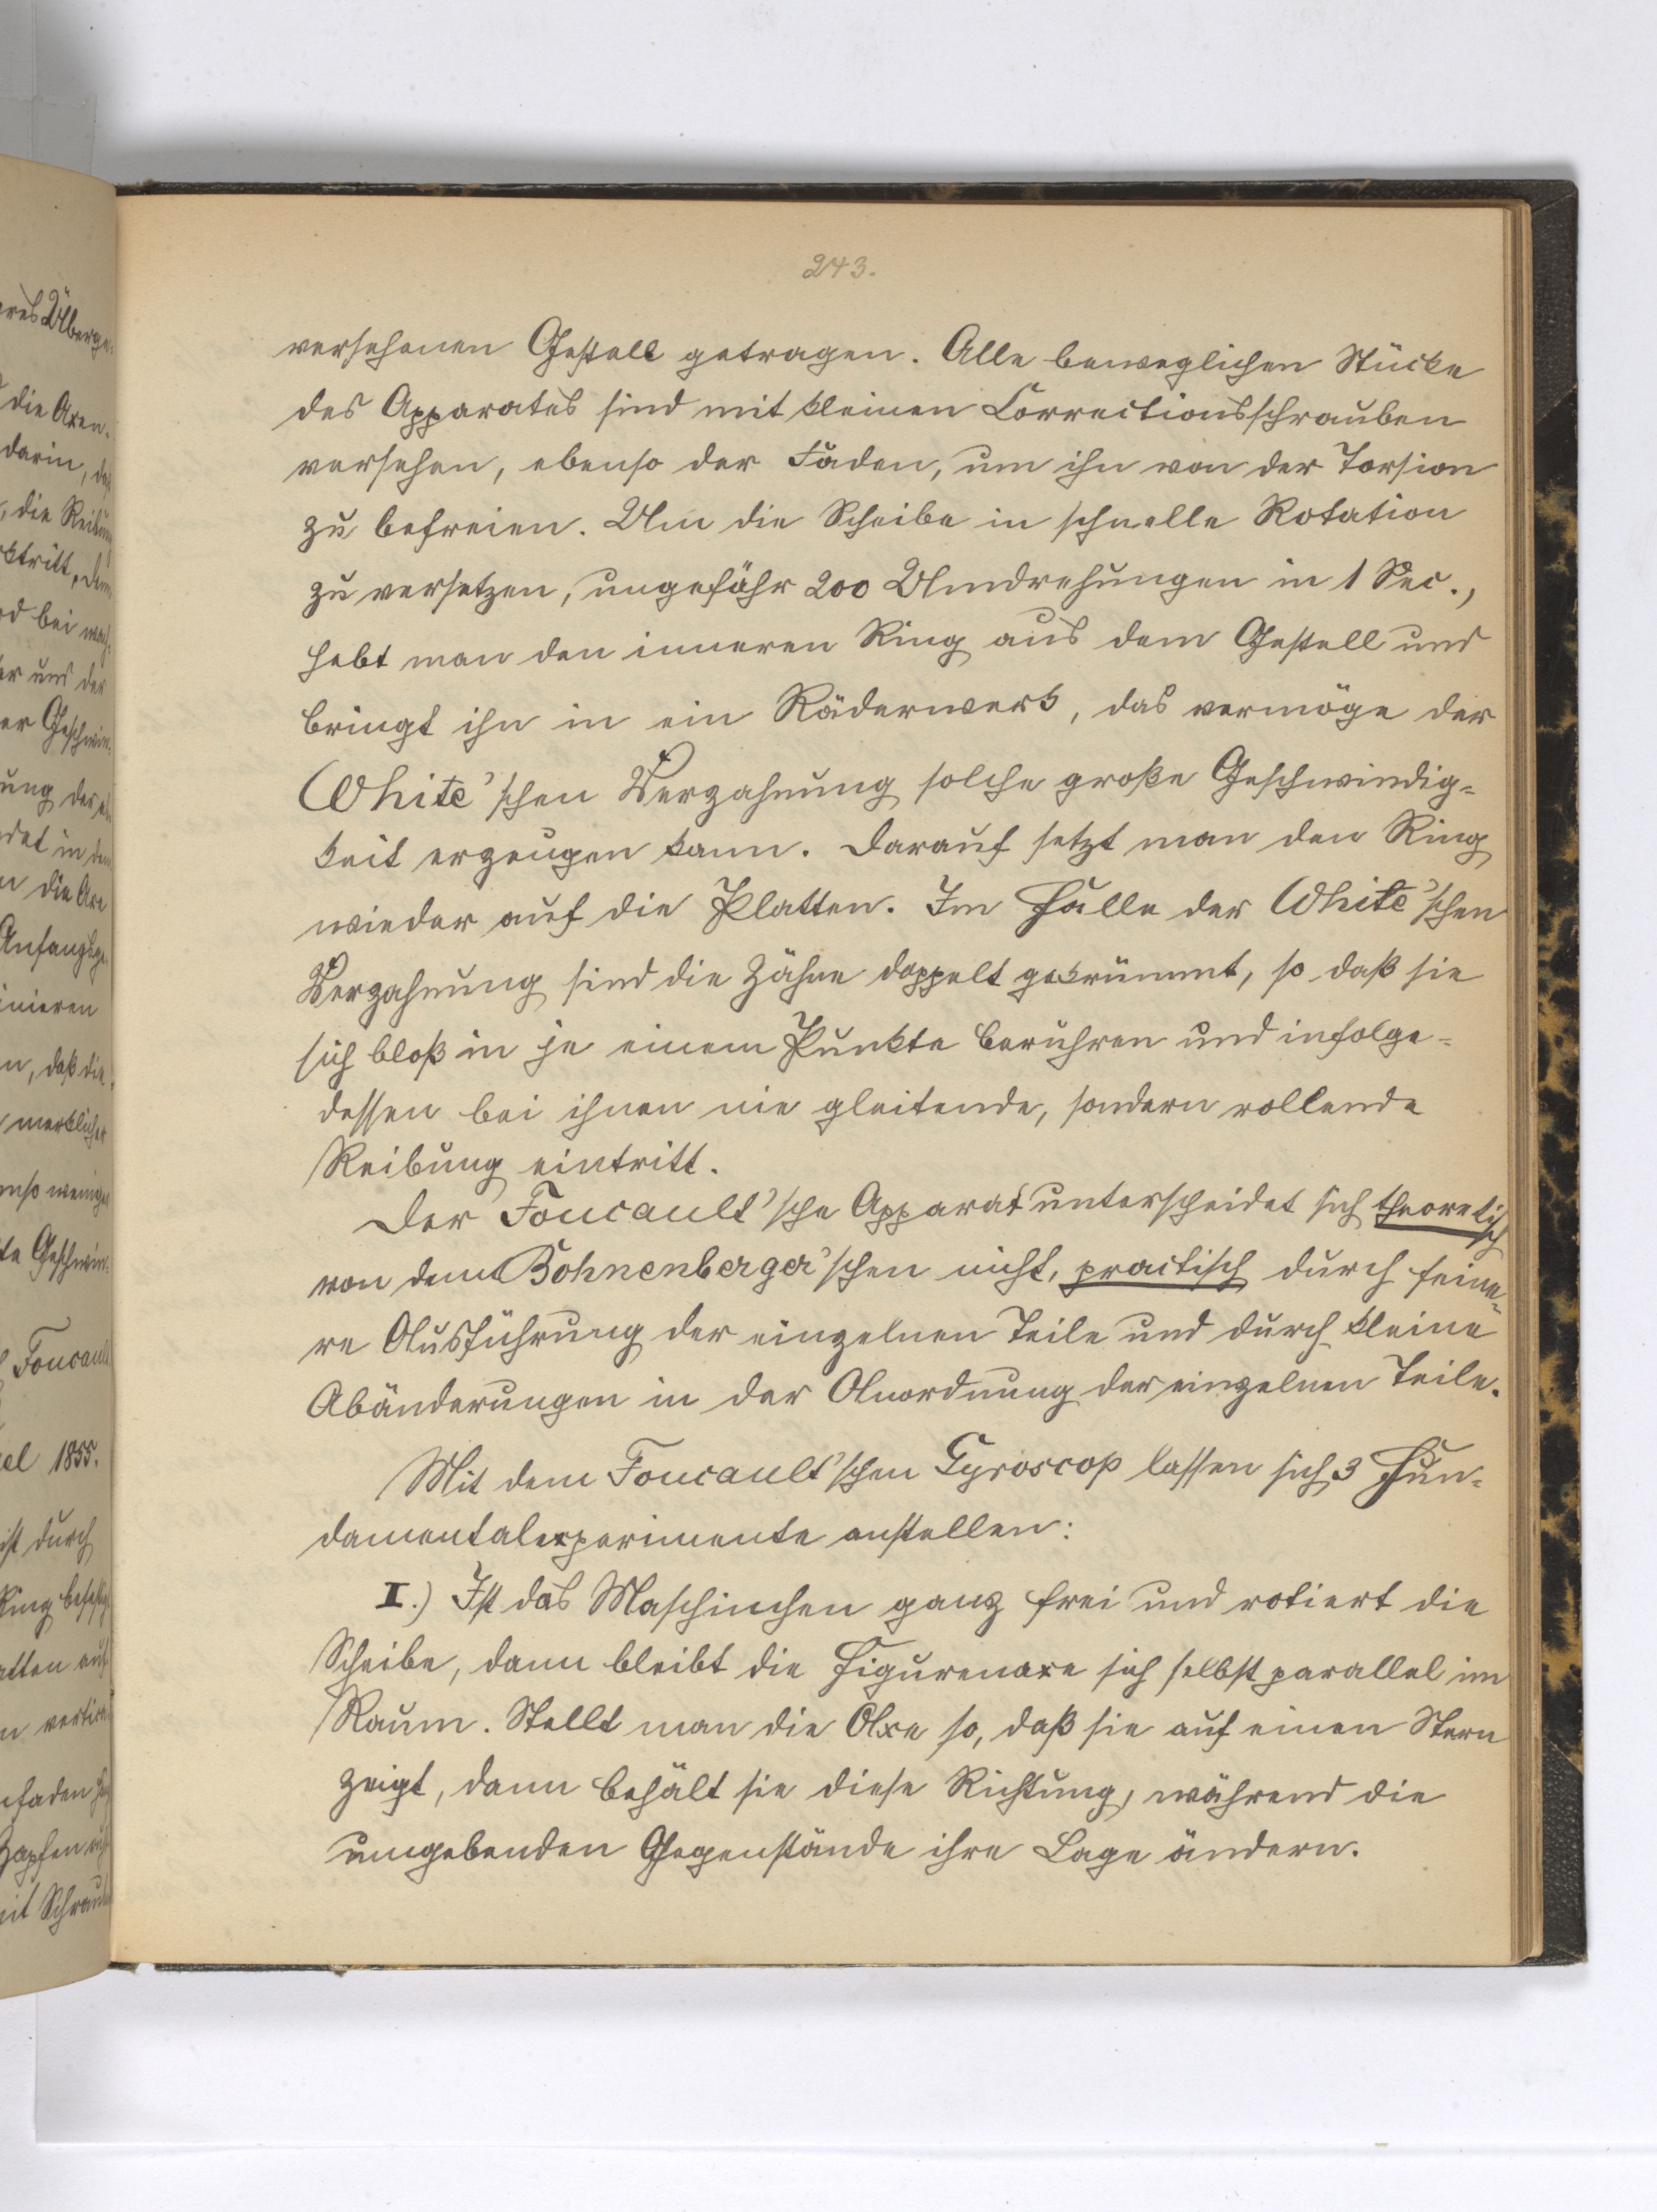 243.
versehenen Gestell getragen. Alle beweglichen Stücke
des Apparates sind mit kleinen Correctionsschrauben
versehen, ebenso der Faden, um ihn von der Torsion
zu befreien. Um die Scheibe in schnelle Rotation
zu versetzen, ungefähr 200 Umdrehungen in 1 Sec.,
hebt man den inneren Ring aus dem Gestell und
bringt ihn in ein Räderwerk, das vermöge der
White'schen Verzahnung solche große Geschwindig-
keit erzeugen kann. Darauf setzt man den Ring
wieder auf die Platten. Im Falle der White'schen
Verzahnung sind die Zähne doppelt gekrümmt, so daß sie
sich bloß in je einem Punkte berühren und infolge-
dessen bei ihnen nie gleitende, sondern rollende
Reibung eintritt.
Der Foucault'sche Apparat unterscheidet sich theoretisch
von dem Bohnenberger'schen nicht, practisch durch feine-
re Ausführung der einzelnen Teile und durch kleine
Abänderungen in der Anordnung der einzelnen Teile.
Mit dem Foucault'schen Gyroscop lassen sich 3 Fun-
damentalexperimente anstellen:
I.) Ist das Maschinchen ganz frei und rotiert die
Scheibe, dann bleibt die Figurenaxe sich selbst parallel im
Raum. Stellt man die Axe so, daß sie auf einen Stern
zeigt, dann behält sie diese Richtung, während die
umgebenden Gegenstände ihre Lage ändern.